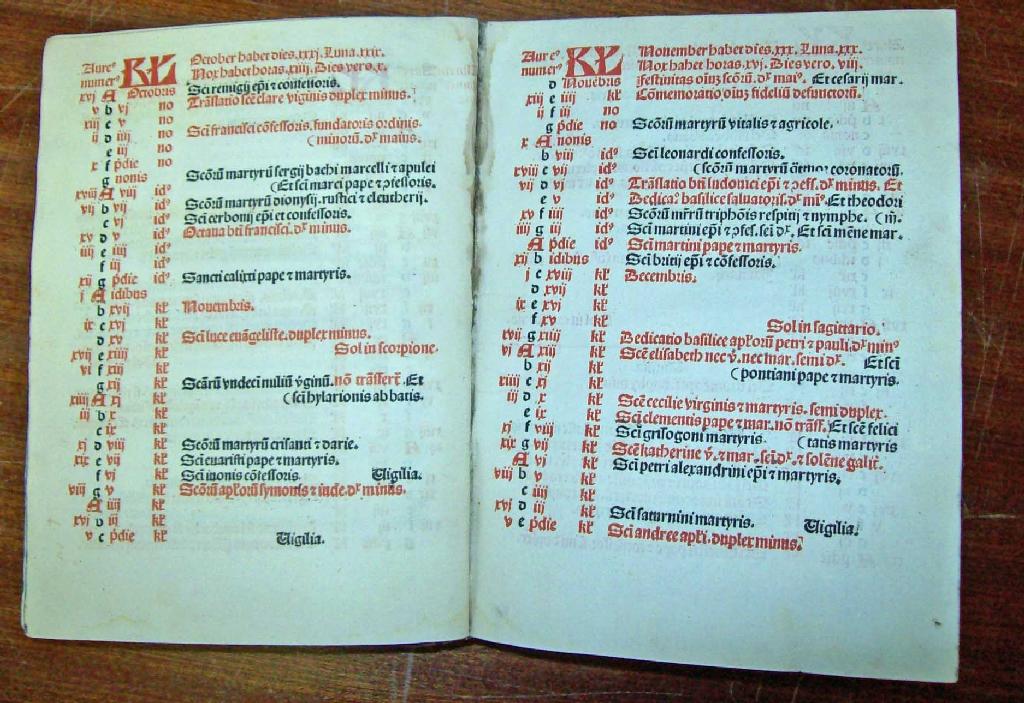 October habet dies.xxxj. Luna.xxix.
Aureꝰ
numerꝰ
KL
Nox habet horas.xiiij. Dies vero.x.
xvj A Octobris Sci remigij epi ⁊ confessoris.
v b vj no Translatio sce clare viginis duplex minus.
xiij c v no
ij d iiij no Sci francisci cōfessoris.fundatoris ordinis.
e iij no (minorū.dꝛ maius.
x f p̄die no
g nonis Scōrū martyrū sergij bachi marcelli ⁊ apulei
xviij A viij idꝰ (Et sci marci pape ⁊ ꝯfessoris.
vij b vij idꝰ Scōrū martyrū dionysij.rustici ⁊ eleutherij.
c vj idꝰ Sci cerbonij epi et confessoris.
xv d v idꝰ Octaua bti francisci.dꝛ minus.
iiij e iiij idꝰ
f iij idꝰ
xij g p̄die idꝰ Sancti calixti pape ⁊ martyris.
j A idibus
b xvij kł Nouembris.
ix c xvj kł
d xv kł Sci luce euāgeliste.duplex minus.
xvij e xiiij kł Sol in scorpione.
vj f xiij kł
g xij kł Scārū vndeci miliū v̄ginū.nō trāsfert̄.Et
xiiij A xj kł (sci hylarionis abbatis.
iij b x kł
c ix kł
xj d viij kł Scōrū martyrū crisanti ⁊ darie.
xix e vij kł Sci euaristi pape ⁊ martyris.
f vj kł Vigilia.
viij g v kł Scōrū aplorū symonis ⁊ iude.dꝛ minus.
A iiij kł
xvj b iij kł
v c p̄die kł Vigilia.
Aureꝰ
numerꝰ
KL
November habet dies.xxx. Luna.xxx.
Nox habet horas.xvj. Dies vero.viij.
d Nouēbris festiuitas oīuꝫ scōrū.dꝛ maiꝰ. Et cesarij mar.
xiij e iiij no Cōmemoratio oīuꝫ fideliū defunctorū.
ij f iij no
g p̄die no Scōrū martyrū vitalis ⁊ agricole.
x A nonis
b viij idꝰ Sci leonardi confessoris.
xviij c vij idꝰ (scōrū martyrū coronatorū.
vij d vj idꝰ Trāslatio bti ludouici epi ⁊ ꝯfess.dꝛ minus. Et
e v idꝰ Dedica. basilice saluatoris.dꝛ miꝰ. Et theodori
xv f iiij idꝰ Scōrū mr̄rū triphōis respitij ⁊ nymphe. (m̄.
iiij g iij idꝰ Sci martini epi ⁊ ꝯfes.sei dꝛ. Et sci mēne mar.
A p̄die idꝰ Sci martini pape ⁊ martyris.
xij b idibus Sci britij epi ⁊ cōfessoris.
j c xviij kł Decembris.
d xvij kł
ix e xvj kł
f xv kł Sol in sagittario.
xvij g xiiij kł Dedicatio basilice aplorū petri ⁊ pauli.dꝛ minꝰ
vj A xiij kł Sce elisabeth nec v̄. nec mar.semi dꝛ. Et sci
b xij kł (pontiani pape ⁊ martyris.
xiiij c xj kł
iij d x kł Sce cecilie virginis ⁊ martyris.semi duplex.
e ix kł Sci clementis pape ⁊ mar.nō trāsf. Et sce felici
xj f viij kł Sci grisogoni martyris. (tatis martyris
xix g vij kł Sce katherine v̄. ⁊ mar.
A vj kł Sci petri alexandrini epi ⁊ martyris.
viij b v kł
c iiij kł
xvj d iij kł Sci saturnini martyris. Vigilia.
v e p̄die kł Sci andree apli.duplex minus.